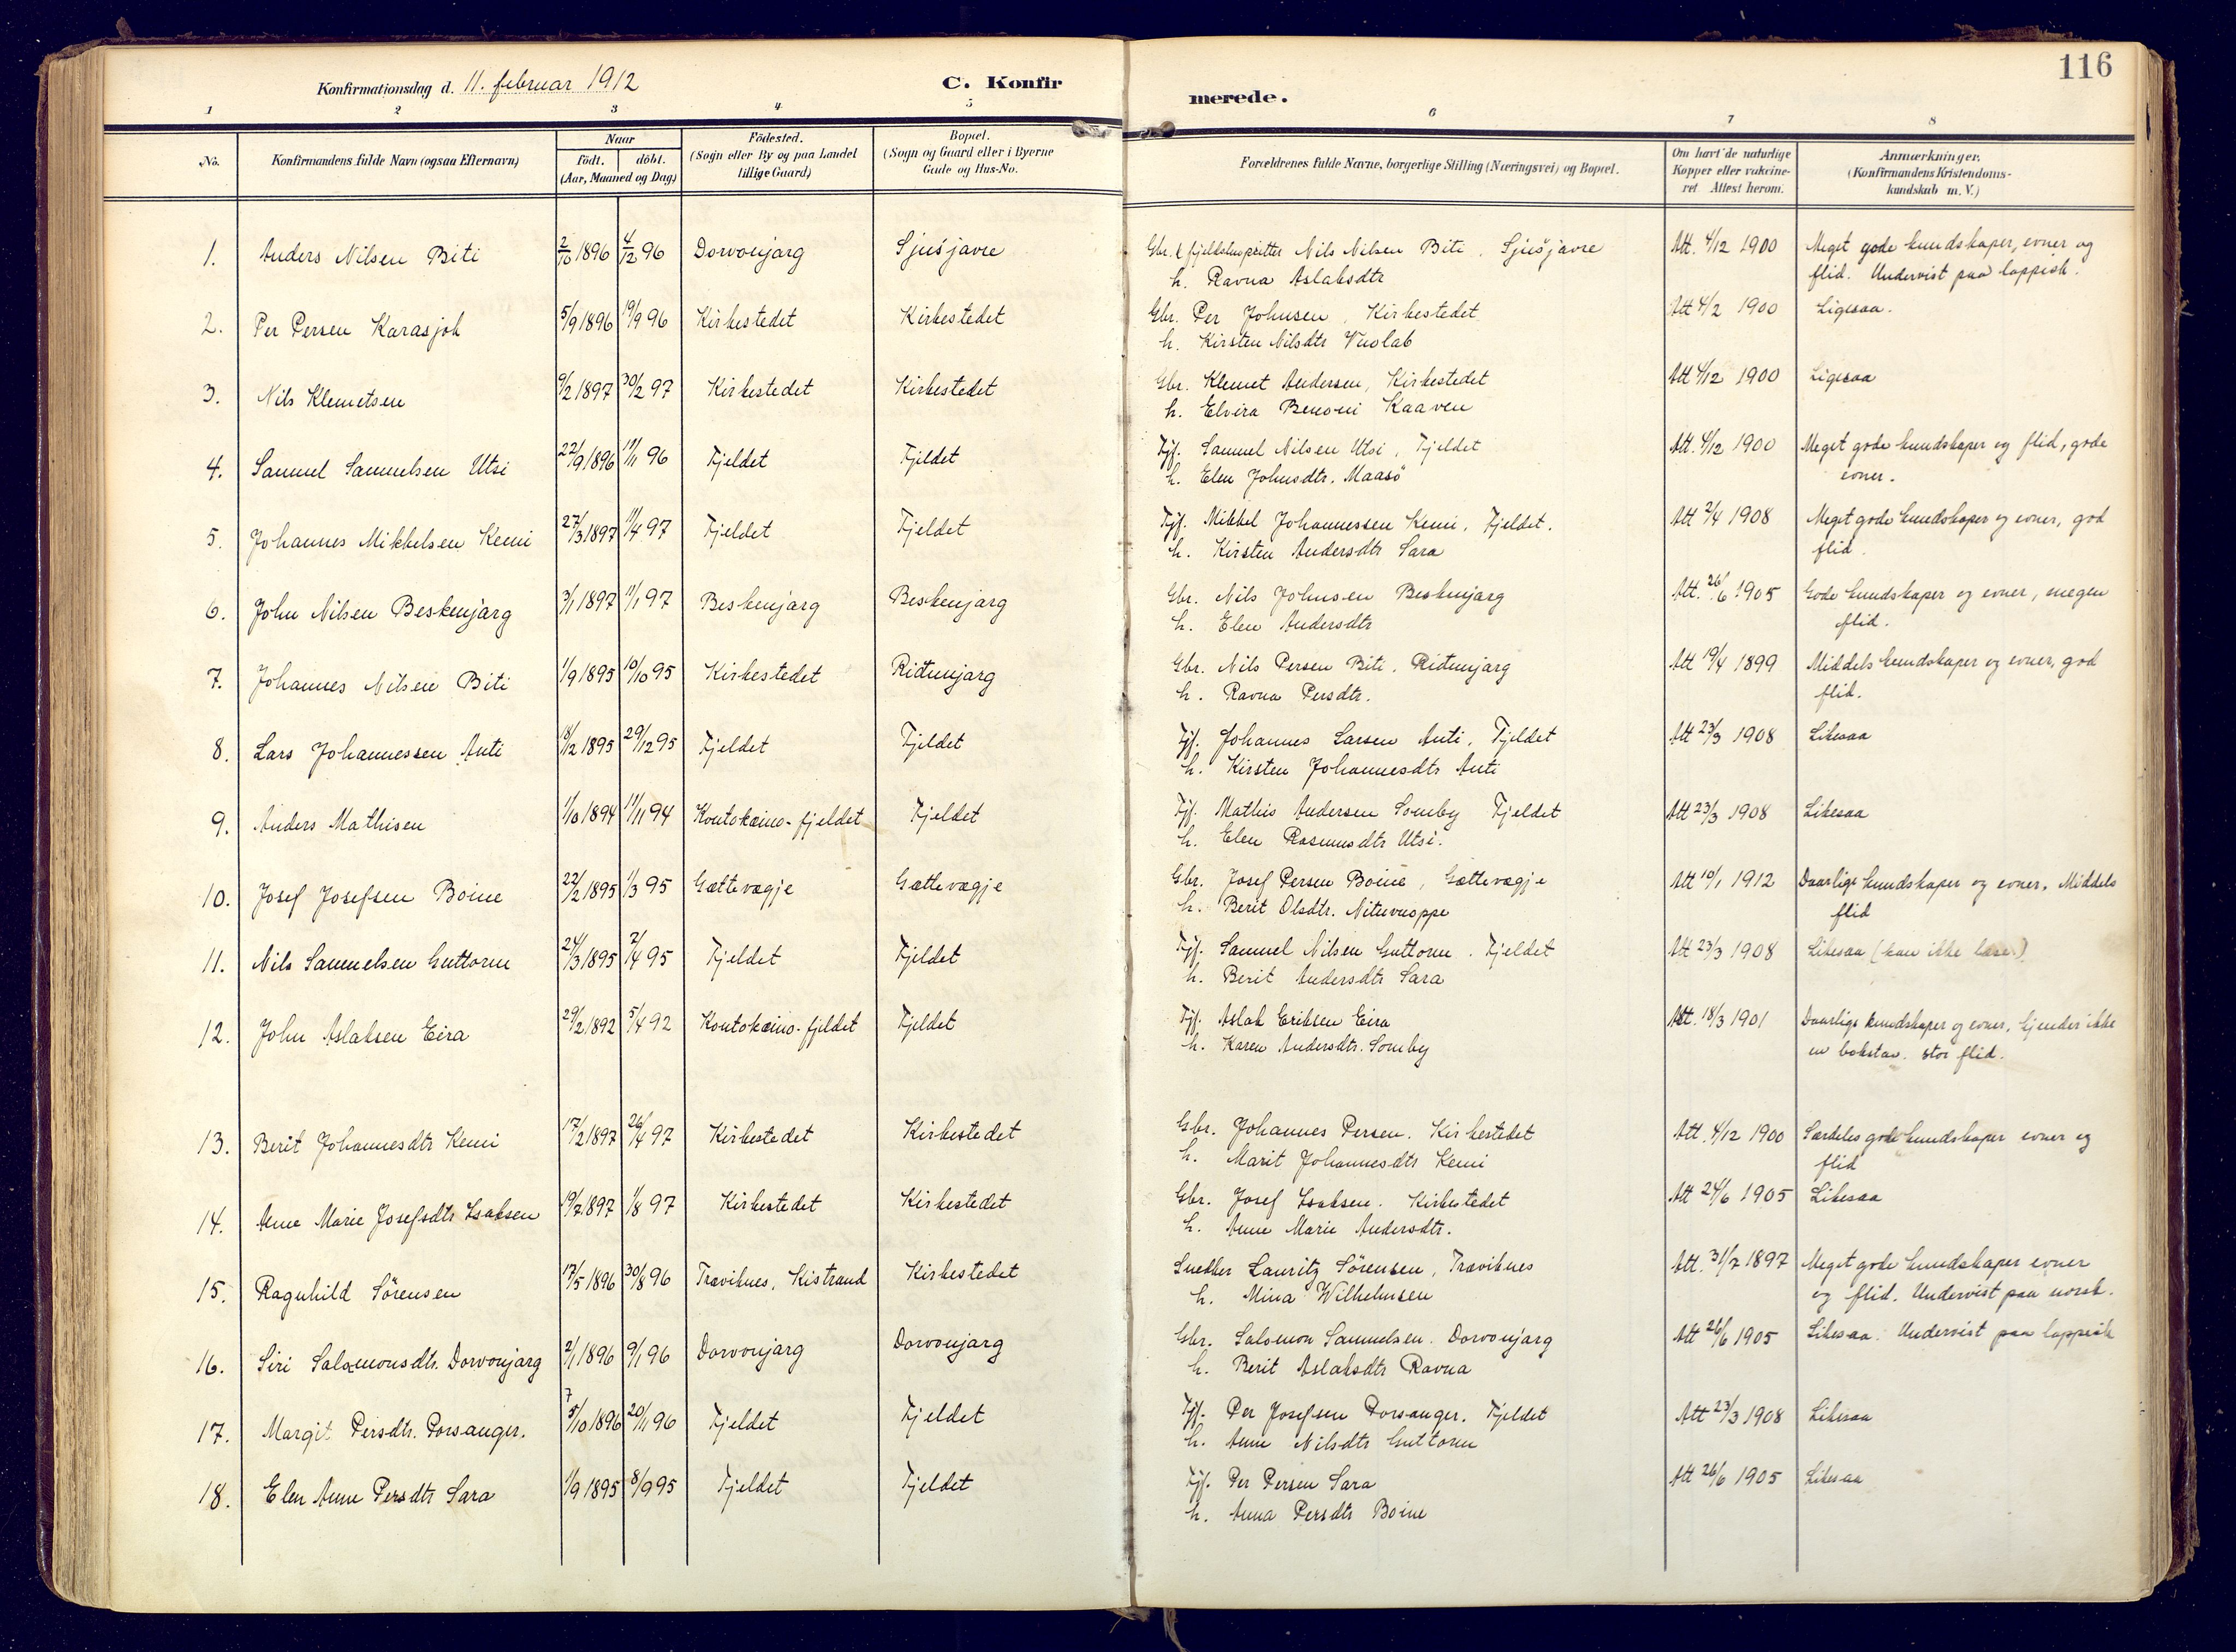 116
Konfirmationsdag d. 11. februar 1912
C. Konfirmerede.
1 2 3 4 5 6 7 8
No. Konfirmandens fulde Navn (ogsaa Efternavn) Naar födt. döbt. (Aar, Maaned og Dag) Födested. (Sogn eller By og paa Landet tillige Gaard) Bopæl. (Sogn og Gaard eller i Byerne Gade og Hus-No. Forældrenes fulde Navne, borgerlige Stilling (Næringsvei) og Bopæl. Om havt de naturlige Kopper eller vakcineret Attest herom. Anmærkninger. (Konfirmandens Kristendomskundskab m. V.)
1. Anders Nilsen Biti 2/10 1896 4/12 96 Dorvonjarg Sjusjavre Gbr. & fjeldskyssskytter Nils Nilsen Biti. Sjusjavre Att. 4/12 1900 Meget gode kundskaper, evner og
h. Ravna Aslaksdtr flid. Undervist paa lappisk.
2. Per Persen Karasjok 5/9 1896 19/9 96 Kirkestedet Kirkestedet Gbr. Per Johnsen, Kirkestedet Att 4/2 1900 Ligesaa.
h. Kirsten Nilsdtr Vuolab
3. Nils Klemetsen 9/2 1897 30/2 97 Kirkestedet Kirkestedet Gbr. Klemet Andersen, Kirkestedet Att 4/12 1900 Ligesaa
h. Elvira Benoni Kaaven
4. Samuel Samuelsen Utsi 22/9 1896 11/11 96 Fjeldet Fjeldet Fjf. Samuel Nilsen Utsi, Fjeldet Att. 4/12 1900 Meget gode kundskaper og flid, gode
h. Elen Johnsdtr. Maasö evner.
5. Johannes Mikkelsen Kemi 27/3 1897 11/4 97 Fjeldet Fjeldet Fjf. Mikkel Johannessen Kemi, Fjeldet. Att 2/4 1908 Meget gode kundskaper og evner, god
h. Kirsten Andersdtr Sara flid.
6. John Nilsen Beskenjarg 3/1 1897 11/1 97 Beskenjarg Beskenjarg Gbr. Nils Johnsen Beskenjarg Att. 26/6 1905 Gode kundskaper og evner, megen
h. Elen Andersdtr flid.
7. Johannes Nilsen Biti 1/9 1895 10/10 95 Kirkestedet Ridtunjarg Gbr. Nils Persen Biti. Ridtunjarg Att 19/4 1899 Middels kundskaper og evner, god
h. Ravna Persdtr. flid.
8. Lars Johannessen Anti 18/12 1895 29/12 95 Fjeldet Fjeldet Fjf. Johannes Larsen Anti, Fjeldet Att 23/3 1908 Likesaa
h. Kirsten Johannesdtr Anti
9. Anders Mathisen 1/10 1894 11/11 94 Koutokæino-fjeldet Fjeldet Fjf. Mathis Andersen Somby Fjeldet Att 23/3 1908 Likesaa
h. Elen Rasmusdtr Utsi.
10. Josef Josefsen Boine 22/2 1895 1/3 95 Gættevægje Gættevægje Gbr. Josef Persen Boine, Gættevægje Att 10/1 1912 Daarlige kundskaper og evner. Middels
h. Berit Olsdtr. Nituvuoppe flid
11. Nils Samuelsen Guttorm 24/3 1895 7/4 95 Fjeldet Fjeldet Fjf. Samuel Nilsen Guttorm. Fjeldet Att 23/3 1908 Likesaa (kan ikke læse)
h. Berit Andersdtr Sara
12. John Aslaksen Eira 29/2 1892 5/4 92 Koutokæino-fjeldet Fjeldet Fjf. Aslak Eriksen Eira Att. 18/3 1901 Daarlige kundskaper og evner, kjender ikke
h. Karen Andersdtr. Somby en bokstav. stor flid.
13. Berit Johannesdtr Kemi 17/2 1897 26/4 97 Kirkestedet Kirkestedet Gbr. Johannes Persen. Kirkestedet Att. 4/12 1900 Særdeles gode kundskaper evner og
h. Marit Johannesdtr Kemi flid
14. Anne Marie Josefsdtr Isaksen 19/7 1897 1/8 97 Kirkestedet Kirkestedet Gbr. Josef Isaksen. Kirkestedet Att 24/6 1905 Likesaa
h. Anne Marie Andersdtr.
15. Ragnhild Sörensen 17/5 1896 30/8 96 Træviknes, Kistrand Kirkestedet Snedker Lauritz Sörensen, Træviknes Att. 31/7 1897 Meget gode kundskaper evner
h. Mina Wilhelmsen og flid. Undervist paa norsk.
16. Siri Salomonsdtr. Dorvonjarg 2/1 1896 9/1 96 Dorvonjarg Dorvonjarg Gbr. Salomon Samuelsen. Dorvonjarg Att 26/6 1905 Likesaa. Undervist paa lappisk
h. Berit Aslaksdtr Ravna
17. Margit Persdtr. Porsanger. 5/10 1896 20/11 96 Fjeldet Fjeldet Fjf. Per Josefsen Porsanger. Fjeldet Att 23/3 1908 Likesaa
h. Anne Nilsdtr Guttorm
18. Elen Anne Persdtr Sara 1/9 1895 8/9 95 Fjeldet Fjeldet Fjf. Per Persen Sara Att 26/6 1905 Likesaa
h. Anna Persdtr Boine